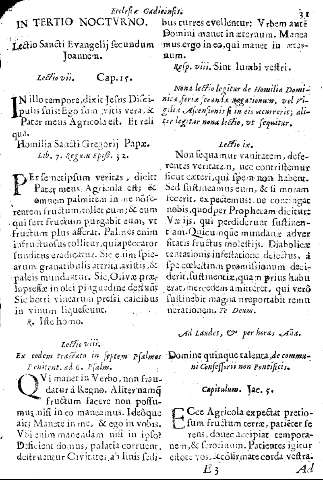 Ecclesiæ Gadicensis.
31
IN TERTIO NOCTVRNO.
Lectio Sancti Evangelij secundum
Joannem.
Lectio vij. Cap. 15.
IN illo tempore, dixit Jesus Disci-
pulis suis: Ego sum vitis vera, &
Pater meus Agricola est. Et reli
qua.
Homilia Sancti Gregorij Papæ
Lib. 7. Regum Epist. 32.
PEr semetipsum veritas, dicit
Pater meus Agricola est; &
omnem palmitem in me nõ fe-
rentem fructum tollet eum; & eum
qui fert fructum purgabit eum, vt
fructum plus afferat. Palmes enim
infructuosus tollitur, quia peccator
funditus eradicatur. Sic enim spie-
arum granatibulis attrita aristis, &
paleis nundatur. Sic Olivæ præ-
Sic botri vinearum pressi calcibus
in vinum liquescunt.
℟. Iste homo.
Lectio viij.
Ex eodem tractatu in septem Psalmos
Penitent. ad 6. Psalm.
QVi manet in Verbo, non frau
datur á Regno. Aliter namq́
fructum facere non possu-
mus, nisi in eo maneamus. Ideòque
ait; Manete in me, & ego in vobis.
Vbi enim manendum nisi in ipso?
Deficient domus, palatia corruent,
destruentur Civitates, ab imis sedi-
bus turres evellentur: Vrbem autẽ
Domini manet in æternum. Manea
mus ergo in eo, qui manet in æter-
num.
Resp. viij. Sint lumbi vestri.
Nona lectio legitur de Homilia Domi-
nicæ, feriæ secundæ Rogationum, vel Vi-
giliæ Ascensionis si in eis occurrerit; ali-
ter legitur nona lectio, vt sequitur.
Lectio ix.
NOn sequamur vanitatem, defe-
rentes veritatem, nec contristemur
sicut cæteri, qui spem non habent.
Sed sustineamus eum, & si moram
fecerit, expectemus: ne contingat
nobis, quod per Prophetam dicitur:
Væ ijs, qui perdiderunt sustinen-
tiam. Quicunque mundanæ adver
sitatis fluctus molestijs, Diabolicæ
tentationis infestatione deiectus, à
spe cœlestium præmiorum deci-
derit, sustinentiæ, quam prius habu
erat, mercedem amitteret, qui verò
sustinebit magna reportabit remu
nerationem. Te Deum.
Ad Laudes, & per horas Aña.
Domine quinque talenta, de commu-
ni Confessoris non Pontificis.
Capitulum. Jac. 5.
ECce Agricola expectat pretio-
sum fructum terræ, patiẽter fe
rens, donec accipiat tempora-
neum, & serotinum. Patientes igitur
estote vos, & confirmate corda vestra.
E 3 Ad